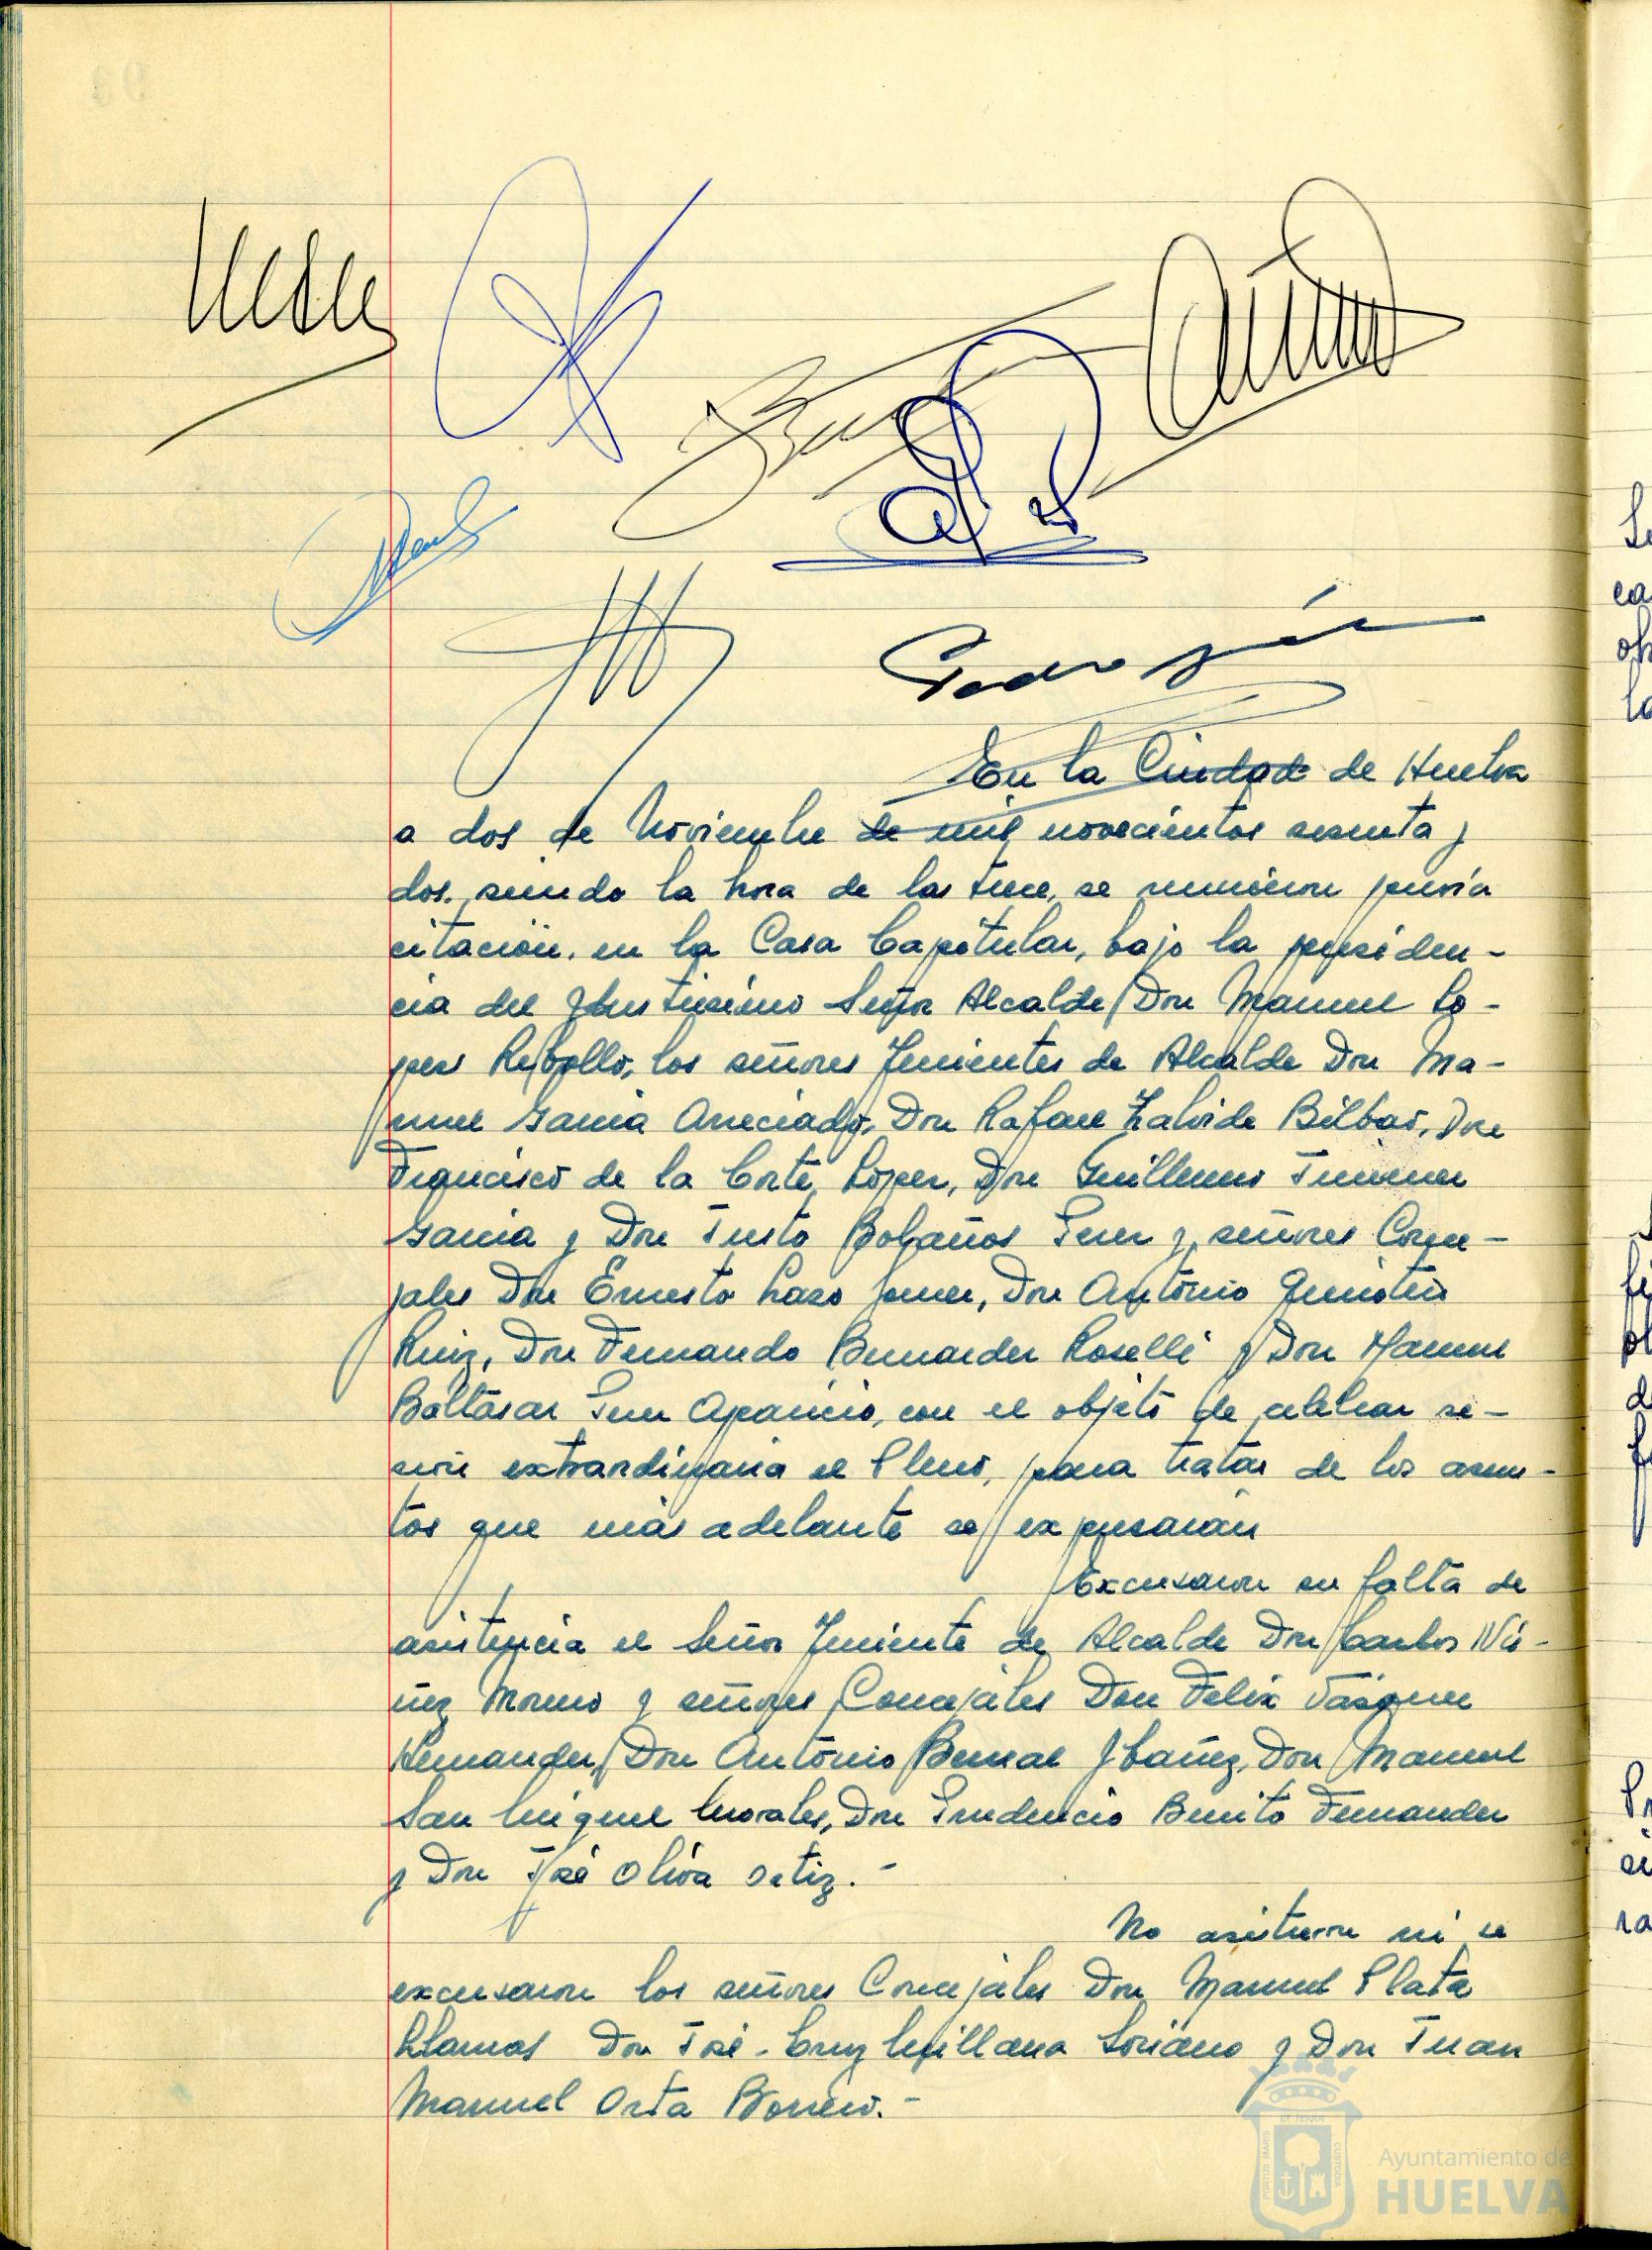 En la Ciudad de Huelva
a dos de Noviembre de mil novecientos sesenta y
dos, siendo la hora de las trece, se reunieron previa
citación, en la Casa Capitular, bajo la presiden-
cia del Ilustrísimo Señor Alcalde Don Manuel Lo-
pez Rebollo, los señores Tenientes de Alcalde Don Ma-
nuel Garcia Arreciado, Don Rafael Zalvide Bilbao, Don
Francisco de la Corte López, Don Guillermo Jimenez
Garcia y Don Justo Bolaños Perez y señores Conce-
jales Don Ernesto Lazo Don Antonio
Ruiz, Don Fernando Bernardez Roselli y Don Manuel
Baltasar Perez Aparicio, con el objeto de celebrar se-
sión extraordinaria el Pleno, para tratar de los asun-
tos que más adelante se expresarán
Excusaron su falta de
asistencia el Señor Teniente de Alcalde Don Carlos Nú-
ñez Moreno y señores Concejales Don Felix Vásquez
Hernandez, Don Antonio Bernal Ybañez, Don Manuel
San Miguel Morales, Don Prudencio Benito Fernandez
y Don José Oliva Ortiz.-
No asistieron ni se
excusaron los señores Concejales Don Manuel Plata
Llamas Don José-Cruz Millana Soriano y Don Juan
Manuel Orta Borrero.-
Ayuntamiento de
HUELVA